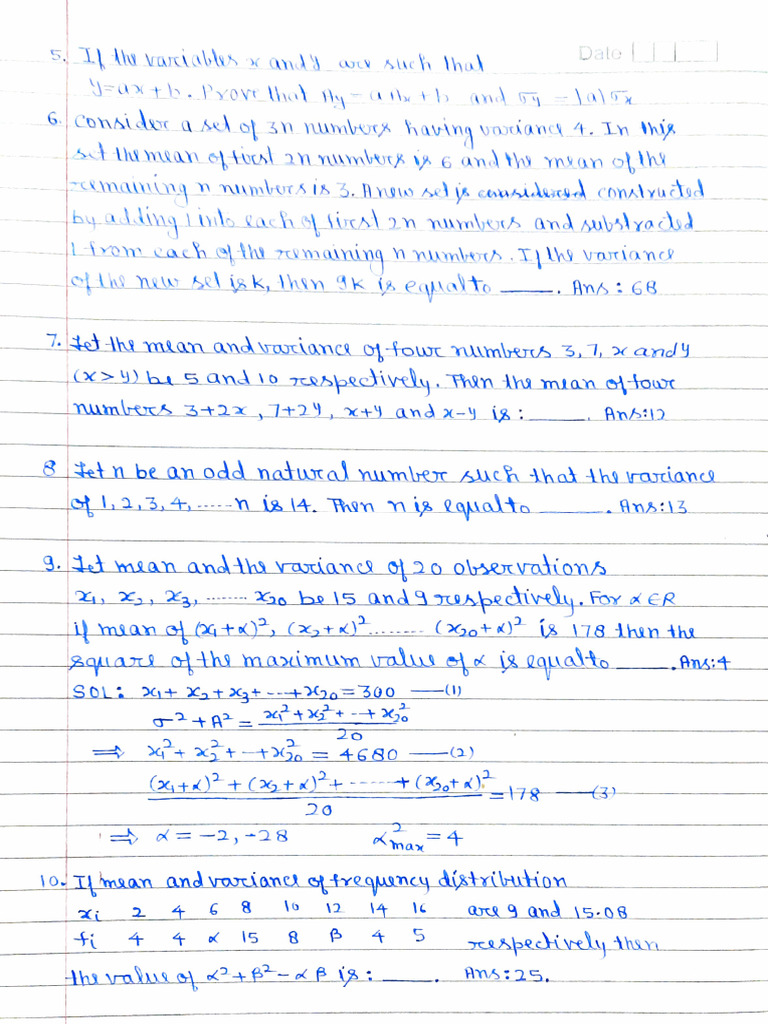 Date
5. If the variables x and y are such that
y=ax+b. Prove that μy = aμx + b and σy = |a|σx
6. Consider a set of 3n numbers having variance 4. In this
set the mean of first 2n numbers is 6 and the mean of the
remaining n numbers is 3. A new set is considered constructed
by adding 1 into each of first 2n numbers and substracted
1 from each of the remaining n numbers. If the variance
of the new set is k, then 9k is equal to ______. Ans: 68
7. Let the mean and variance of four numbers 3, 7, x and y
(x>y) be 5 and 10 respectively. Then the mean of four
numbers 3+2x, 7+2y, x+y and x-y is: ______. Ans:12
8 Let n be an odd natural number such that the variance
of 1, 2, 3, 4, ..... n is 14. Then n is equal to ______. Ans:13
9. Let mean and the variance of 20 observations
x₁, x₂, x₃, ........ x₂₀ be 15 and 9 respectively. For α∈R
if mean of (x₁+α)², (x₂+α)² ........ (x₂₀+α)² is 178 then the
square of the maximum value of α is equal to ______. Ans:4
SOL: x₁+ x₂+x₃+ ---+x₂₀=300 —(1)
σ²+A² = x₁²+x₂²+ --+x₂₀² / 20
⇒ x₁²+x₂²+ --+x₂₀² = 4680 —(2)
(x₁+α)²+(x₂+α)²+ ------+(x₂₀+α)² / 20 = 178 —(3)
⇒ α = -2, -28 α²max = 4
10. If mean and variance of frequency distribution
xi 2 4 6 8 10 12 14 16 are 9 and 15.08
fi 4 4 α 15 8 β 4 5 respectively then
the value of α²+β²-αβ is: ______. Ans:25.